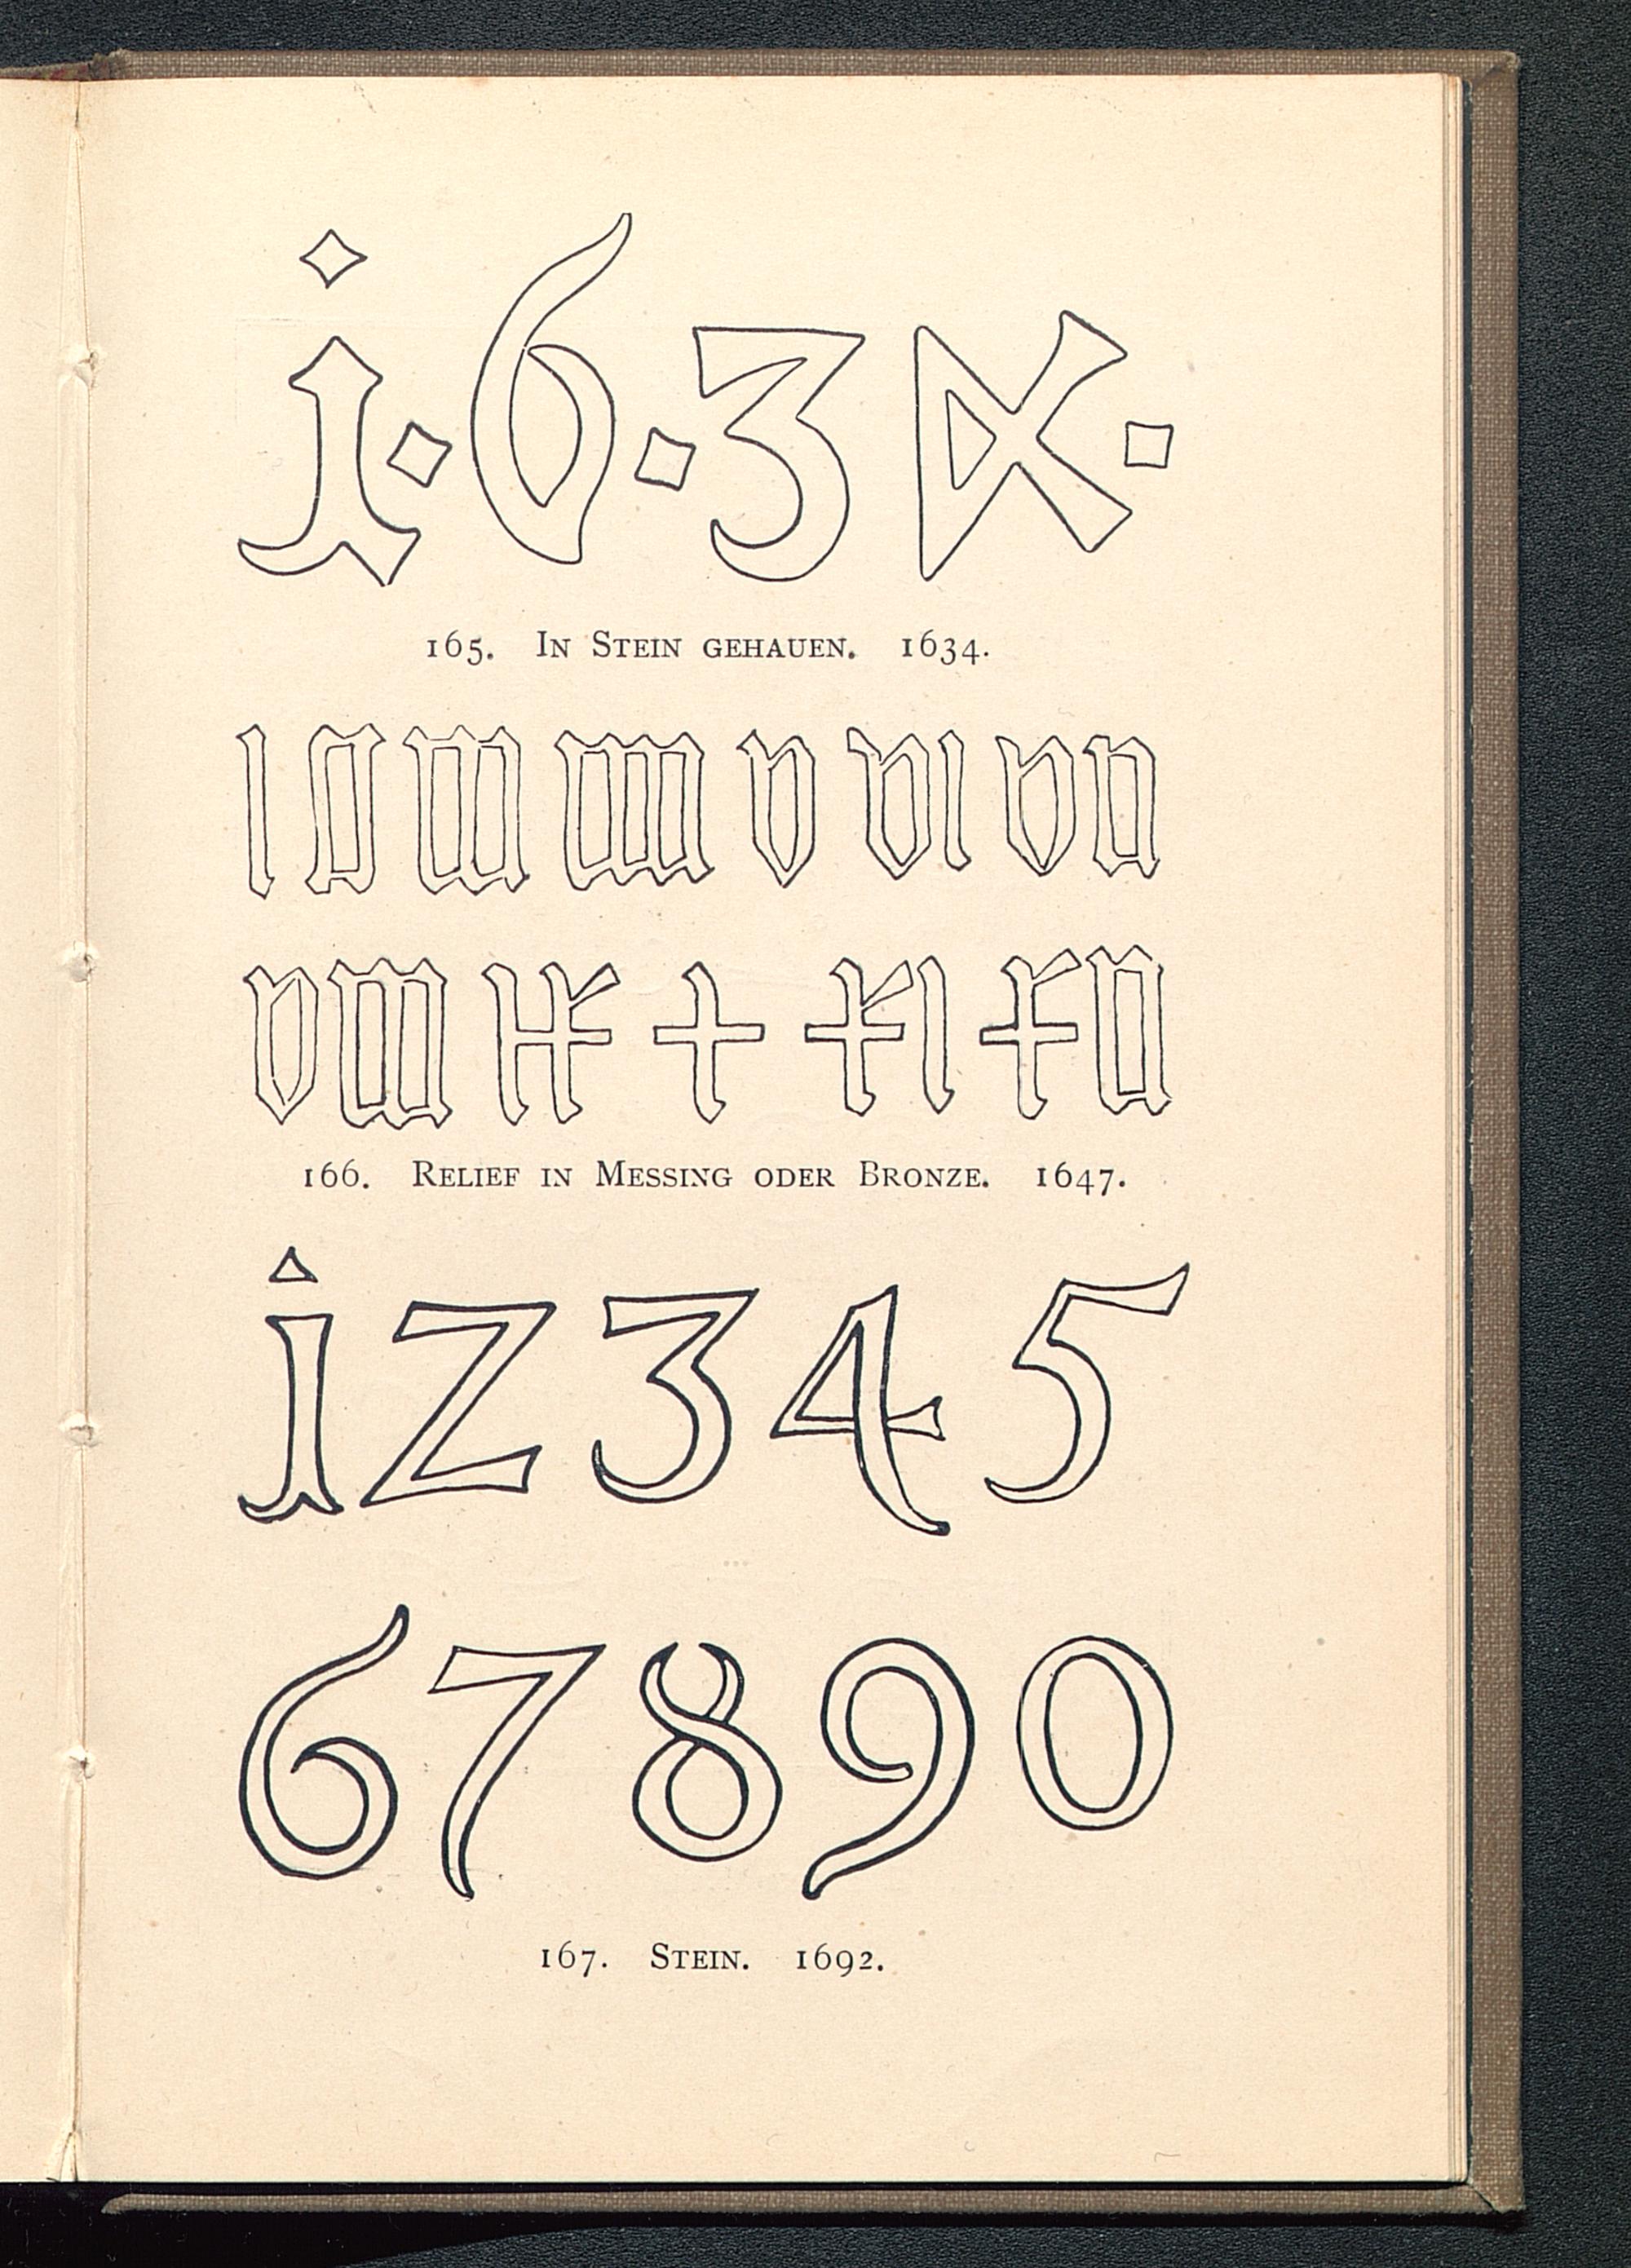 i·6·34·
165. In Stein gehauen. 1634.
I II III IIII V VI VII
VIII IX X XI XII
166. Relief in Messing oder Bronze. 1647.
i2345
67890
167. Stein. 1692.